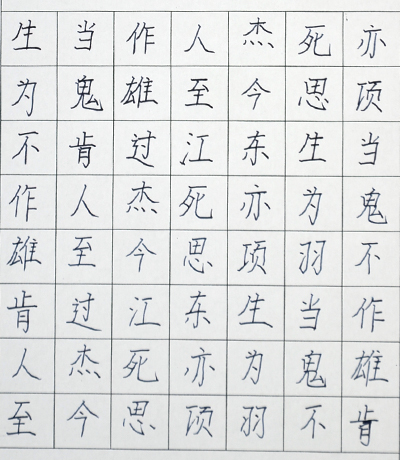 生当作人杰死亦
为鬼雄至今思项
不肯过江东生当
作人杰死亦为鬼
雄至今思项羽不
肯过江东生当作
人杰死亦为鬼雄
至今思项羽不肯